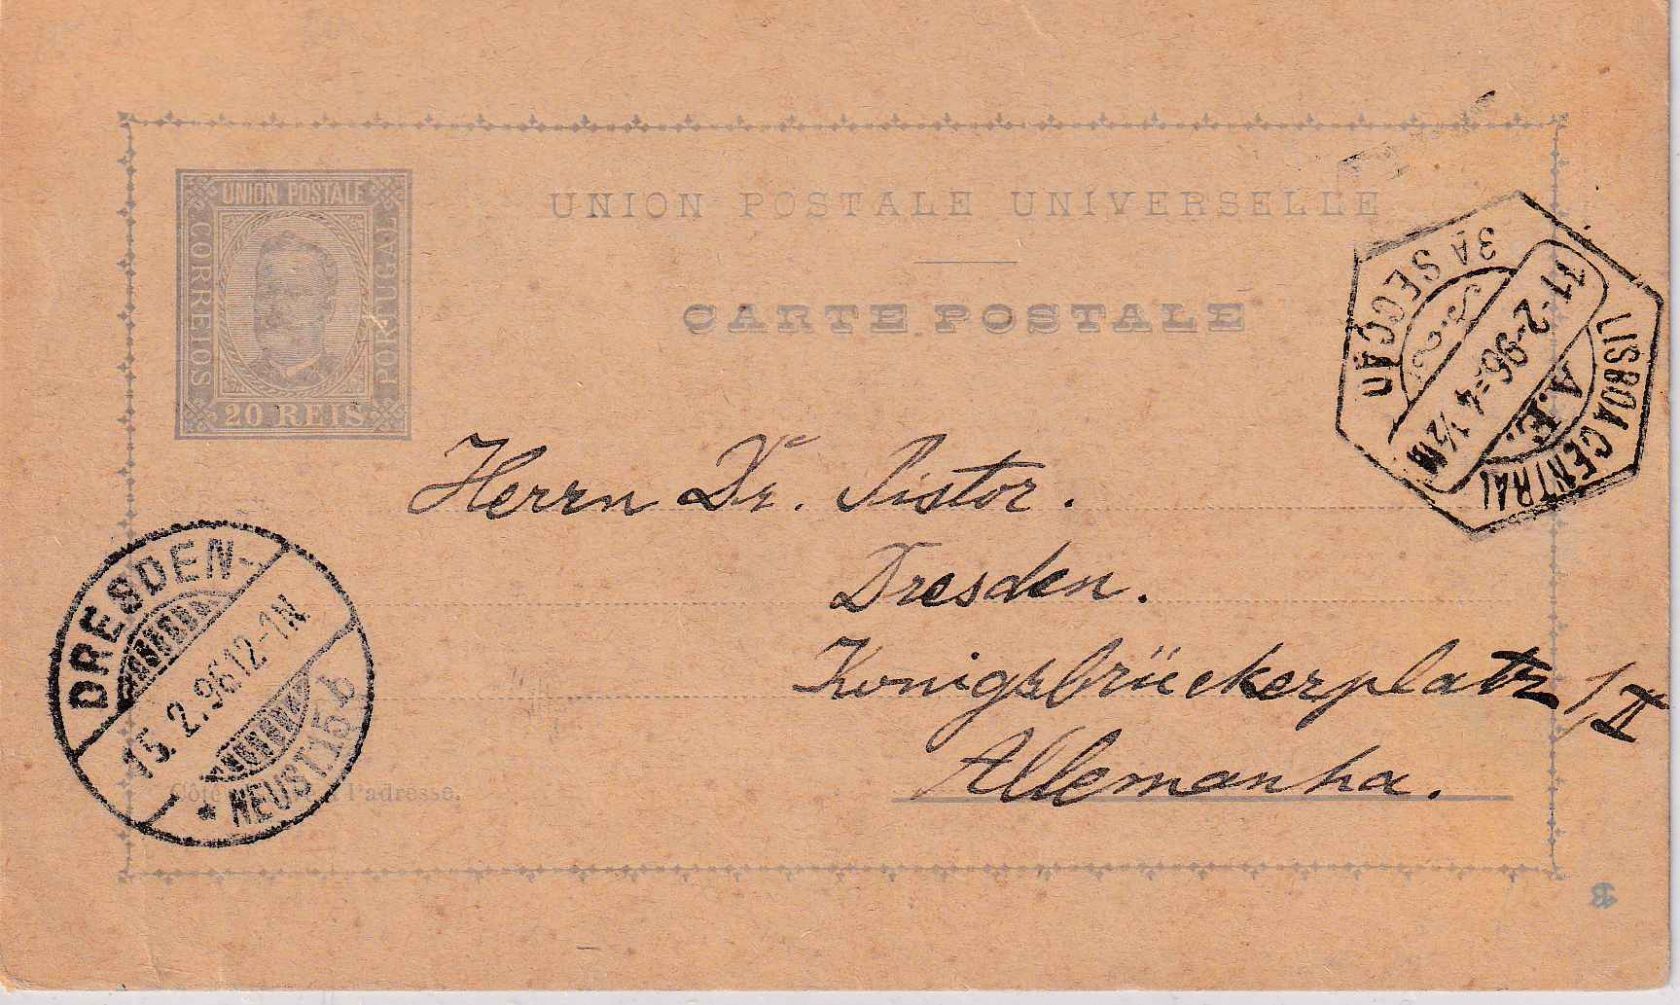 UNION POSTALE UNIVERSELLE
CARTE POSTALE
UNION POSTALE
CORREIOS
PORTUGAL
20 REIS
3A SECÇÃO
11-2-96=4½M
A.E.
LISBOA CENTRAL
Herrn Dr. Pistor.
Dresden.
Königsbrückerplatz 1/II
Allemanha.
DRESDEN-
15.2.96 12-1N
* NEUST. 15 b
Côté l'adresse.
B